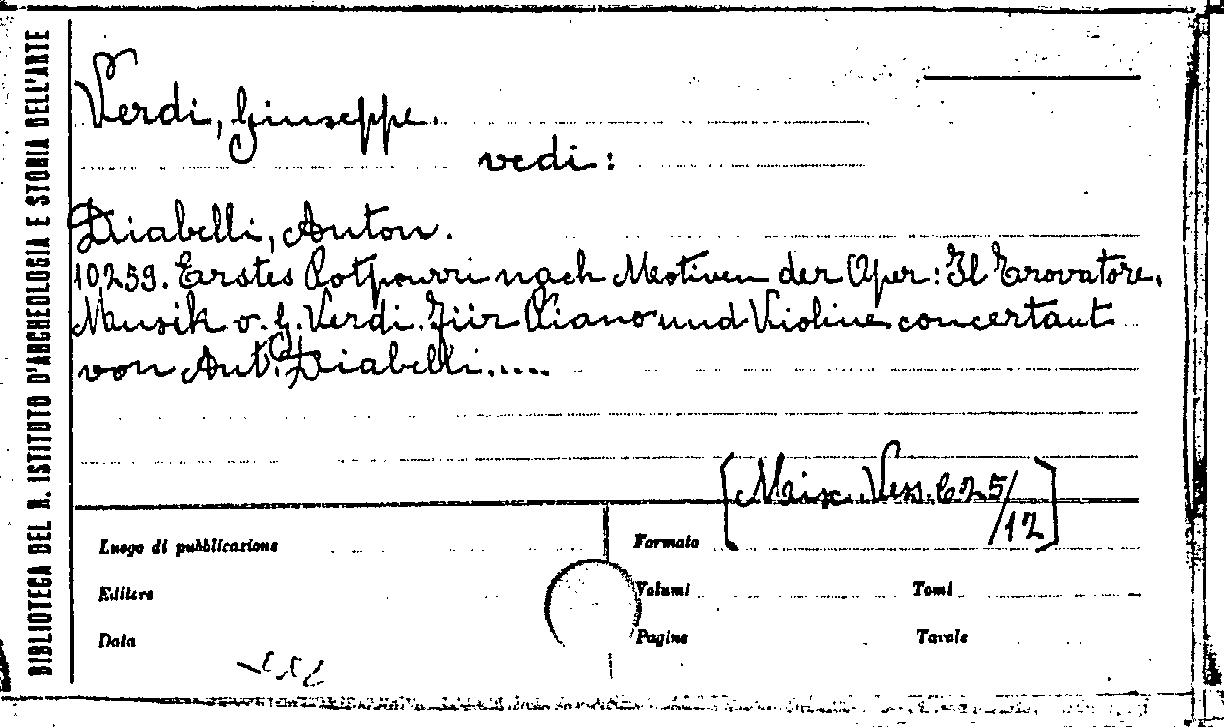 BIBLIOTECA DEL R. ISTITUTO D'ARCHEOLOGIA E STORIA DELL'ARTE
Verdi, Giuseppe.
vedi:
Diabelli, Anton.
10259. Erstes Potpourri nach Motiven der Oper: Il Trovatore.
Musik v. G. Verdi. Für Piano und Violine concertant
von Ant. Diabelli.....
[Misc. Vess. 625/
/12]
Luogo di pubblicazione
Formato
Editore
Volumi
Tomi
Data
Pagine
Tavole